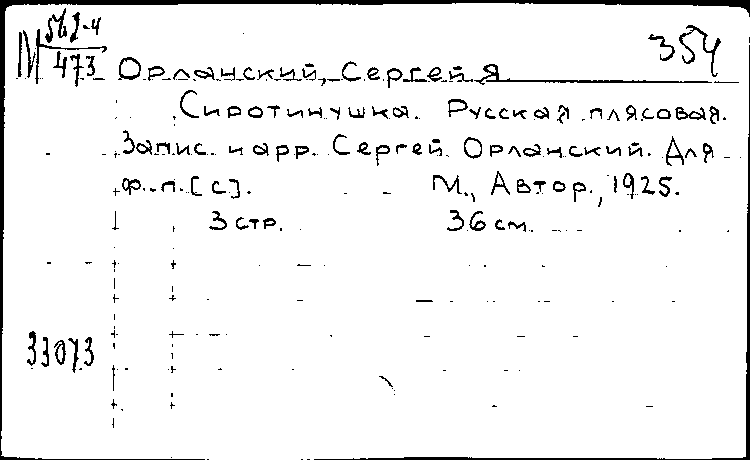 М 562-4
473
354
Орланский, Сергей Я
Сиротинушка. Русская плясовая.
Запис. и арр. Сергей Орланский. Для
ф.-п. [с]. М., Автор., 1925.
3 стр. 36 см.
33073